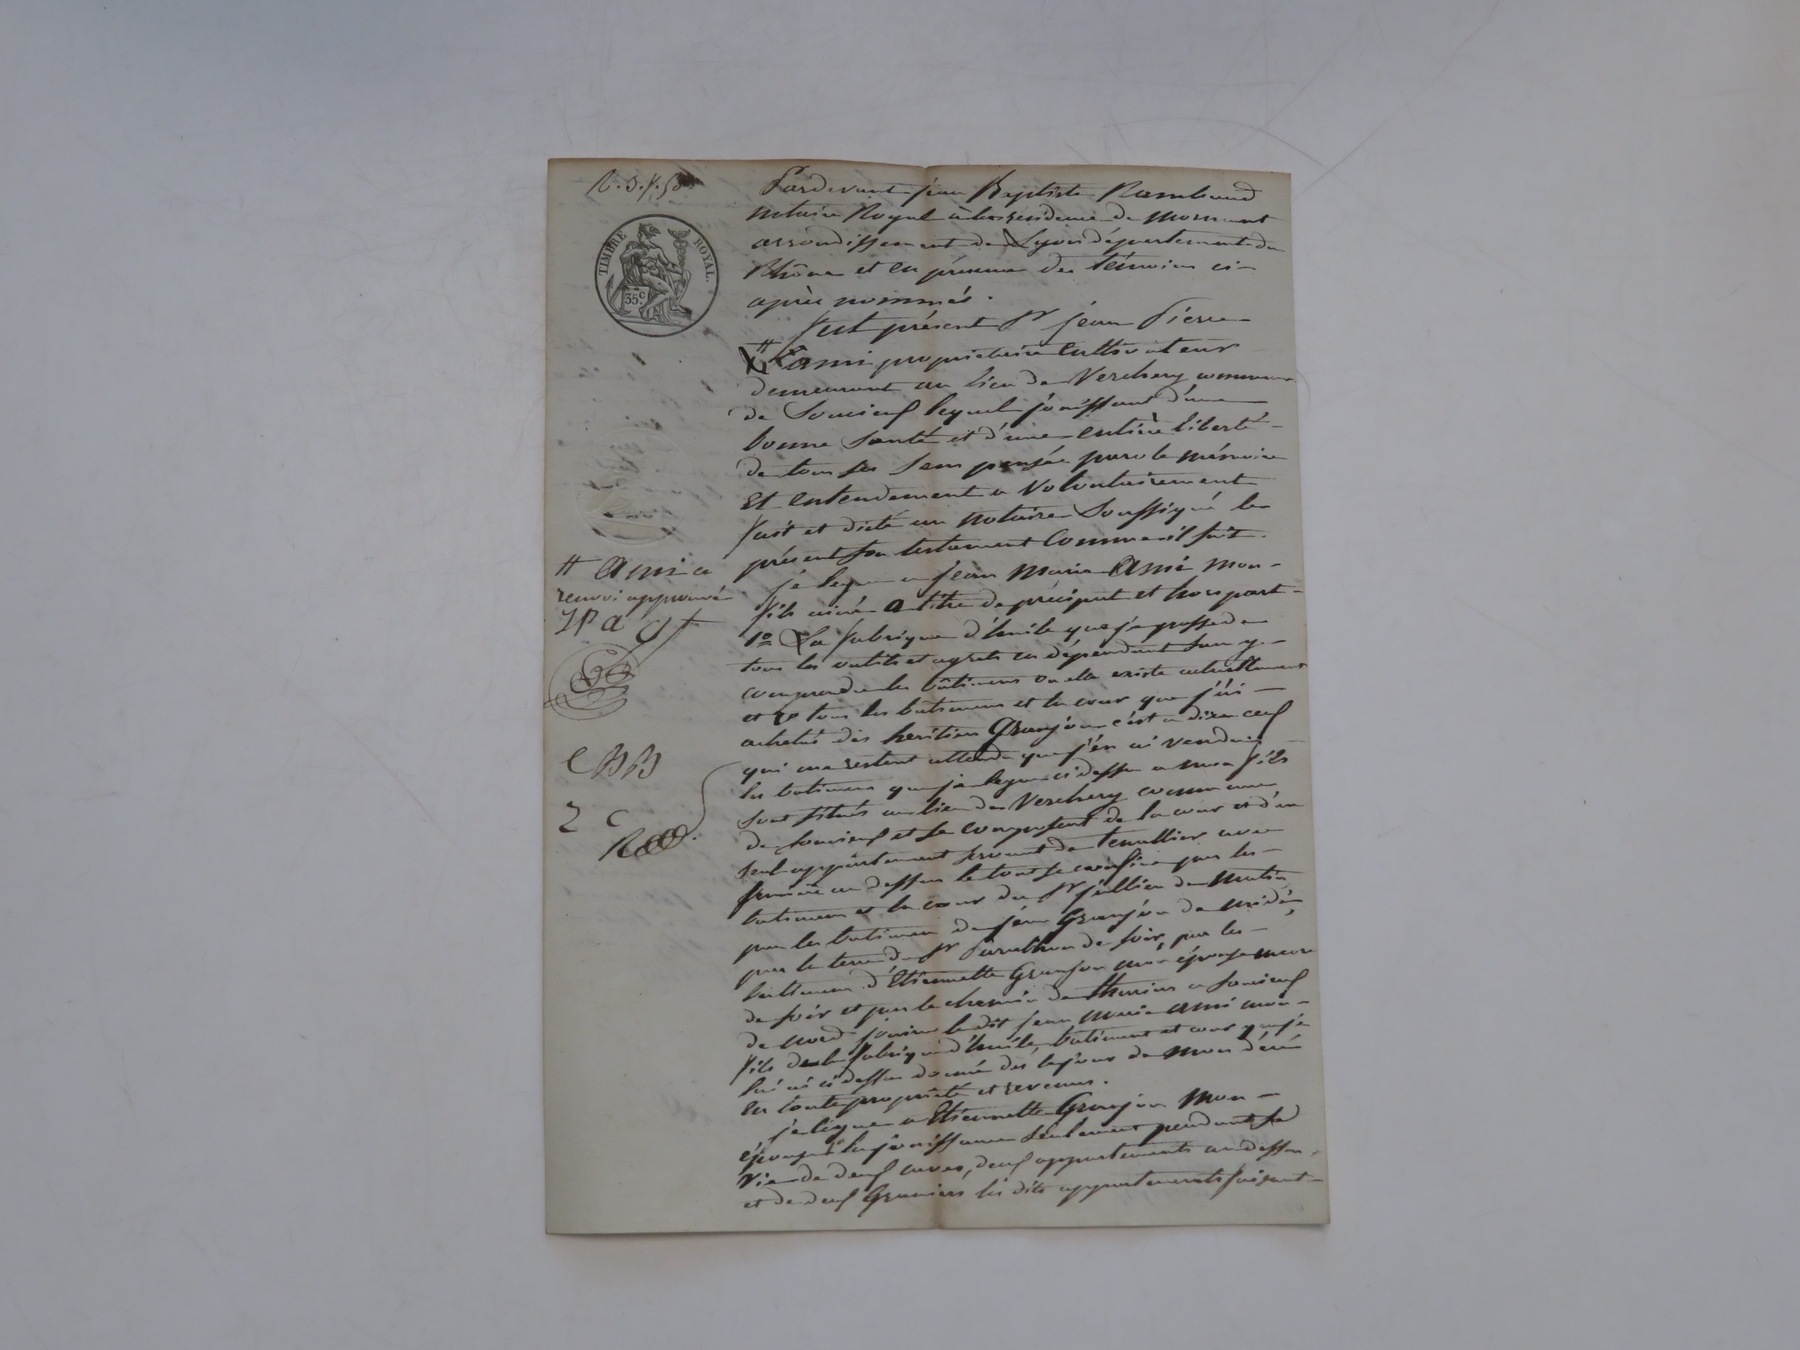 R. D. f. 50
TIMBRE ROYAL
35 c
Pardevant jean Baptiste Rambaud
notaire Royal à la residence de mornant
arrondissement de Lyon département du
Rhône et en présence des témoins ci-
après nommés.
fut présent Sr jean Pierre
# ami propriétaire cultivateur
demeurant au lieu de Verchery commune
de Soucieu lequel jouissant d'une
bonne santé et d'une entière liberté
de tous ses sens pensée parole mémoire
Et entendement a volontairement
fait et dicté au notaire Soussigné le
présent son testament comme il suit.
je legue a jean marie Ami mon
fils ainé a titre de préciput et hors part
1º La fabrique d'huile que je possede
tous les outils et agrets en dépendant sans y
comprendre les bâtimens ou elle existe actuellement
et 2º tous les batimens et la cour que j'ai
achetés des heritiers Granjon c'est a dire ceux
qui me restent attendu que j'en ai vendu
les batimens que je legue ci dessus a mon fils
sont situés au lieu de Verchery commune
de soucieu et se composent de la cour et d'un
seul appartement servant de tenallier avec
fenière au dessus le tout se confine par les
batimens et la cour du Sr jullien de matin
par les batimens de jean Granjon de midi
par la terre du Sr de soir, par les
batimens d'Etiennette Granjon mon épouse encore
de soir et par le chemin de thurins a soucieu
de nord jouira le dit jean marie ami mon
fils de la fabrique d'huile, batiment et cour que je
lui ai ci dessus donné dès le jour de mon décès
En toute propriété et revenus.
je legue a Etiennette Granjon mon
épouse la jouissance seulement pendant sa
vie de deux caves, deux appartements au dessus
et de deux greniers les dits appartements faisant
# Ami
renvoi approuvé
JP a
2 C